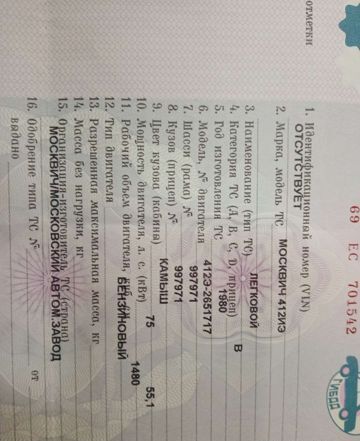 отметки
69 ЕС 701542
1. Идентификационный номер (VIN)
ОТСУТСТВУЕТ
2. Марка, модель ТС МОСКВИЧ 412ИЭ
3. Наименование (тип ТС) ЛЕГКОВОЙ
4. Категория ТС (А, В, С, D, прицеп) В
5. Год изготовления ТС 1980
6. Модель, № двигателя 412Э-2651717
7. Шасси (рама) № 997971
8. Кузов (прицеп) № 997971
9. Цвет кузова (кабины) КАМЫШ
10. Мощность двигателя, л. с. (кВт) 75 55,1
11. Рабочий объем двигателя, куб. см 1480
12. Тип двигателя БЕНЗИНОВЫЙ
13. Разрешенная максимальная масса, кг
14. Масса без нагрузки, кг
15. Организация-изготовитель ТС (страна)
МОСКВИЧ/МОСКОВСКИЙ АВТОМ.ЗАВОД
16. Одобрение типа ТС № от
выдано
ГИБДД